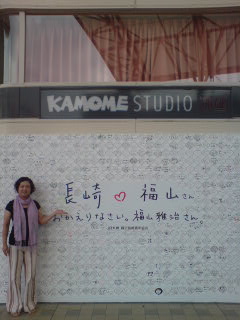 KAMOME STUDIO
長崎 ♡ 福山さん
おかえりなさい。福山雅治さん。